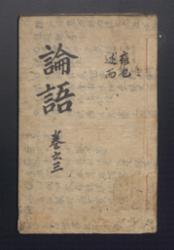 雍也
述而
論語
卷之三